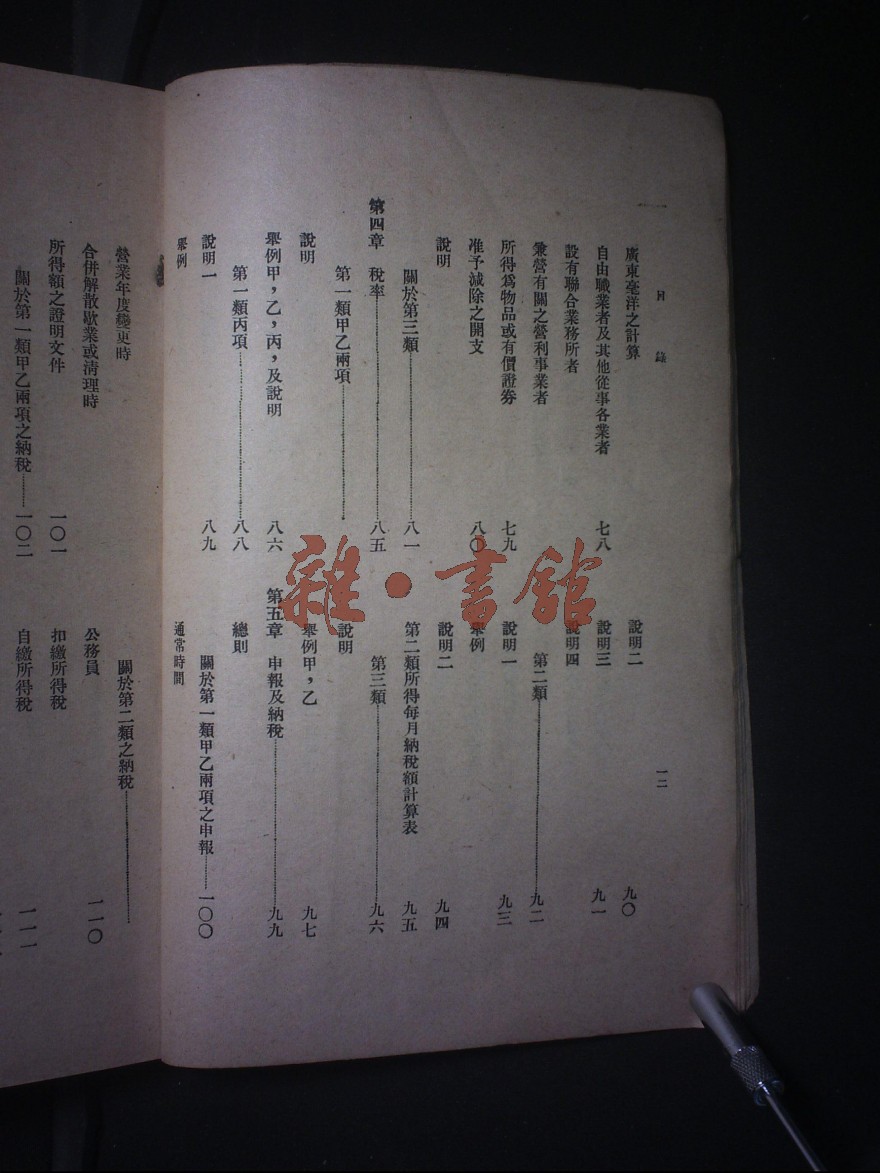 目錄
一二
廣東毫洋之計算
自由職業者及其他從事各業者 七八
設有聯合業務所者
兼營有關之營利事業者
所得爲物品或有價證券 七九
准予減除之開支 八〇
說明
關於第三類 八一
第四章 稅率 八五
第一類甲乙兩項
說明
舉例甲，乙，丙，及說明 八六
第一類丙項 八八
說明一 八九
舉例
說明二 九〇
說明三 九一
說明四
第二類 九二
說明一 九三
舉例
說明二 九四
第二類所得每月納稅額計算表 九五
第三類 九六
說明
舉例甲，乙 九七
第五章 申報及納稅 九九
總則
關於第一類甲乙兩項之申報 一〇〇
通常時間
營業年度變更時
合併解散歇業或清理時
所得額之證明文件 一〇一
關於第一類甲乙兩項之納稅 一〇二
關於第二類之納稅
公務員 一一〇
扣繳所得稅 一一一
自繳所得稅
雜·書館